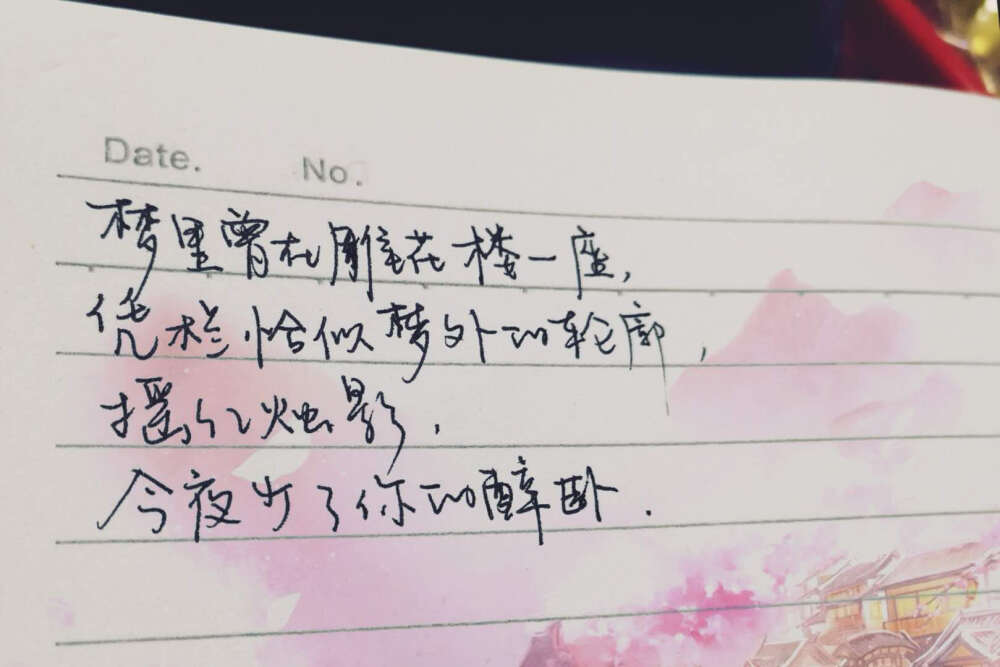 Date. No.
梦里曾在雕花楼一座,
凭栏恰似梦外的轮廓,
摇红烛影,
今夜少了你的醉卧.